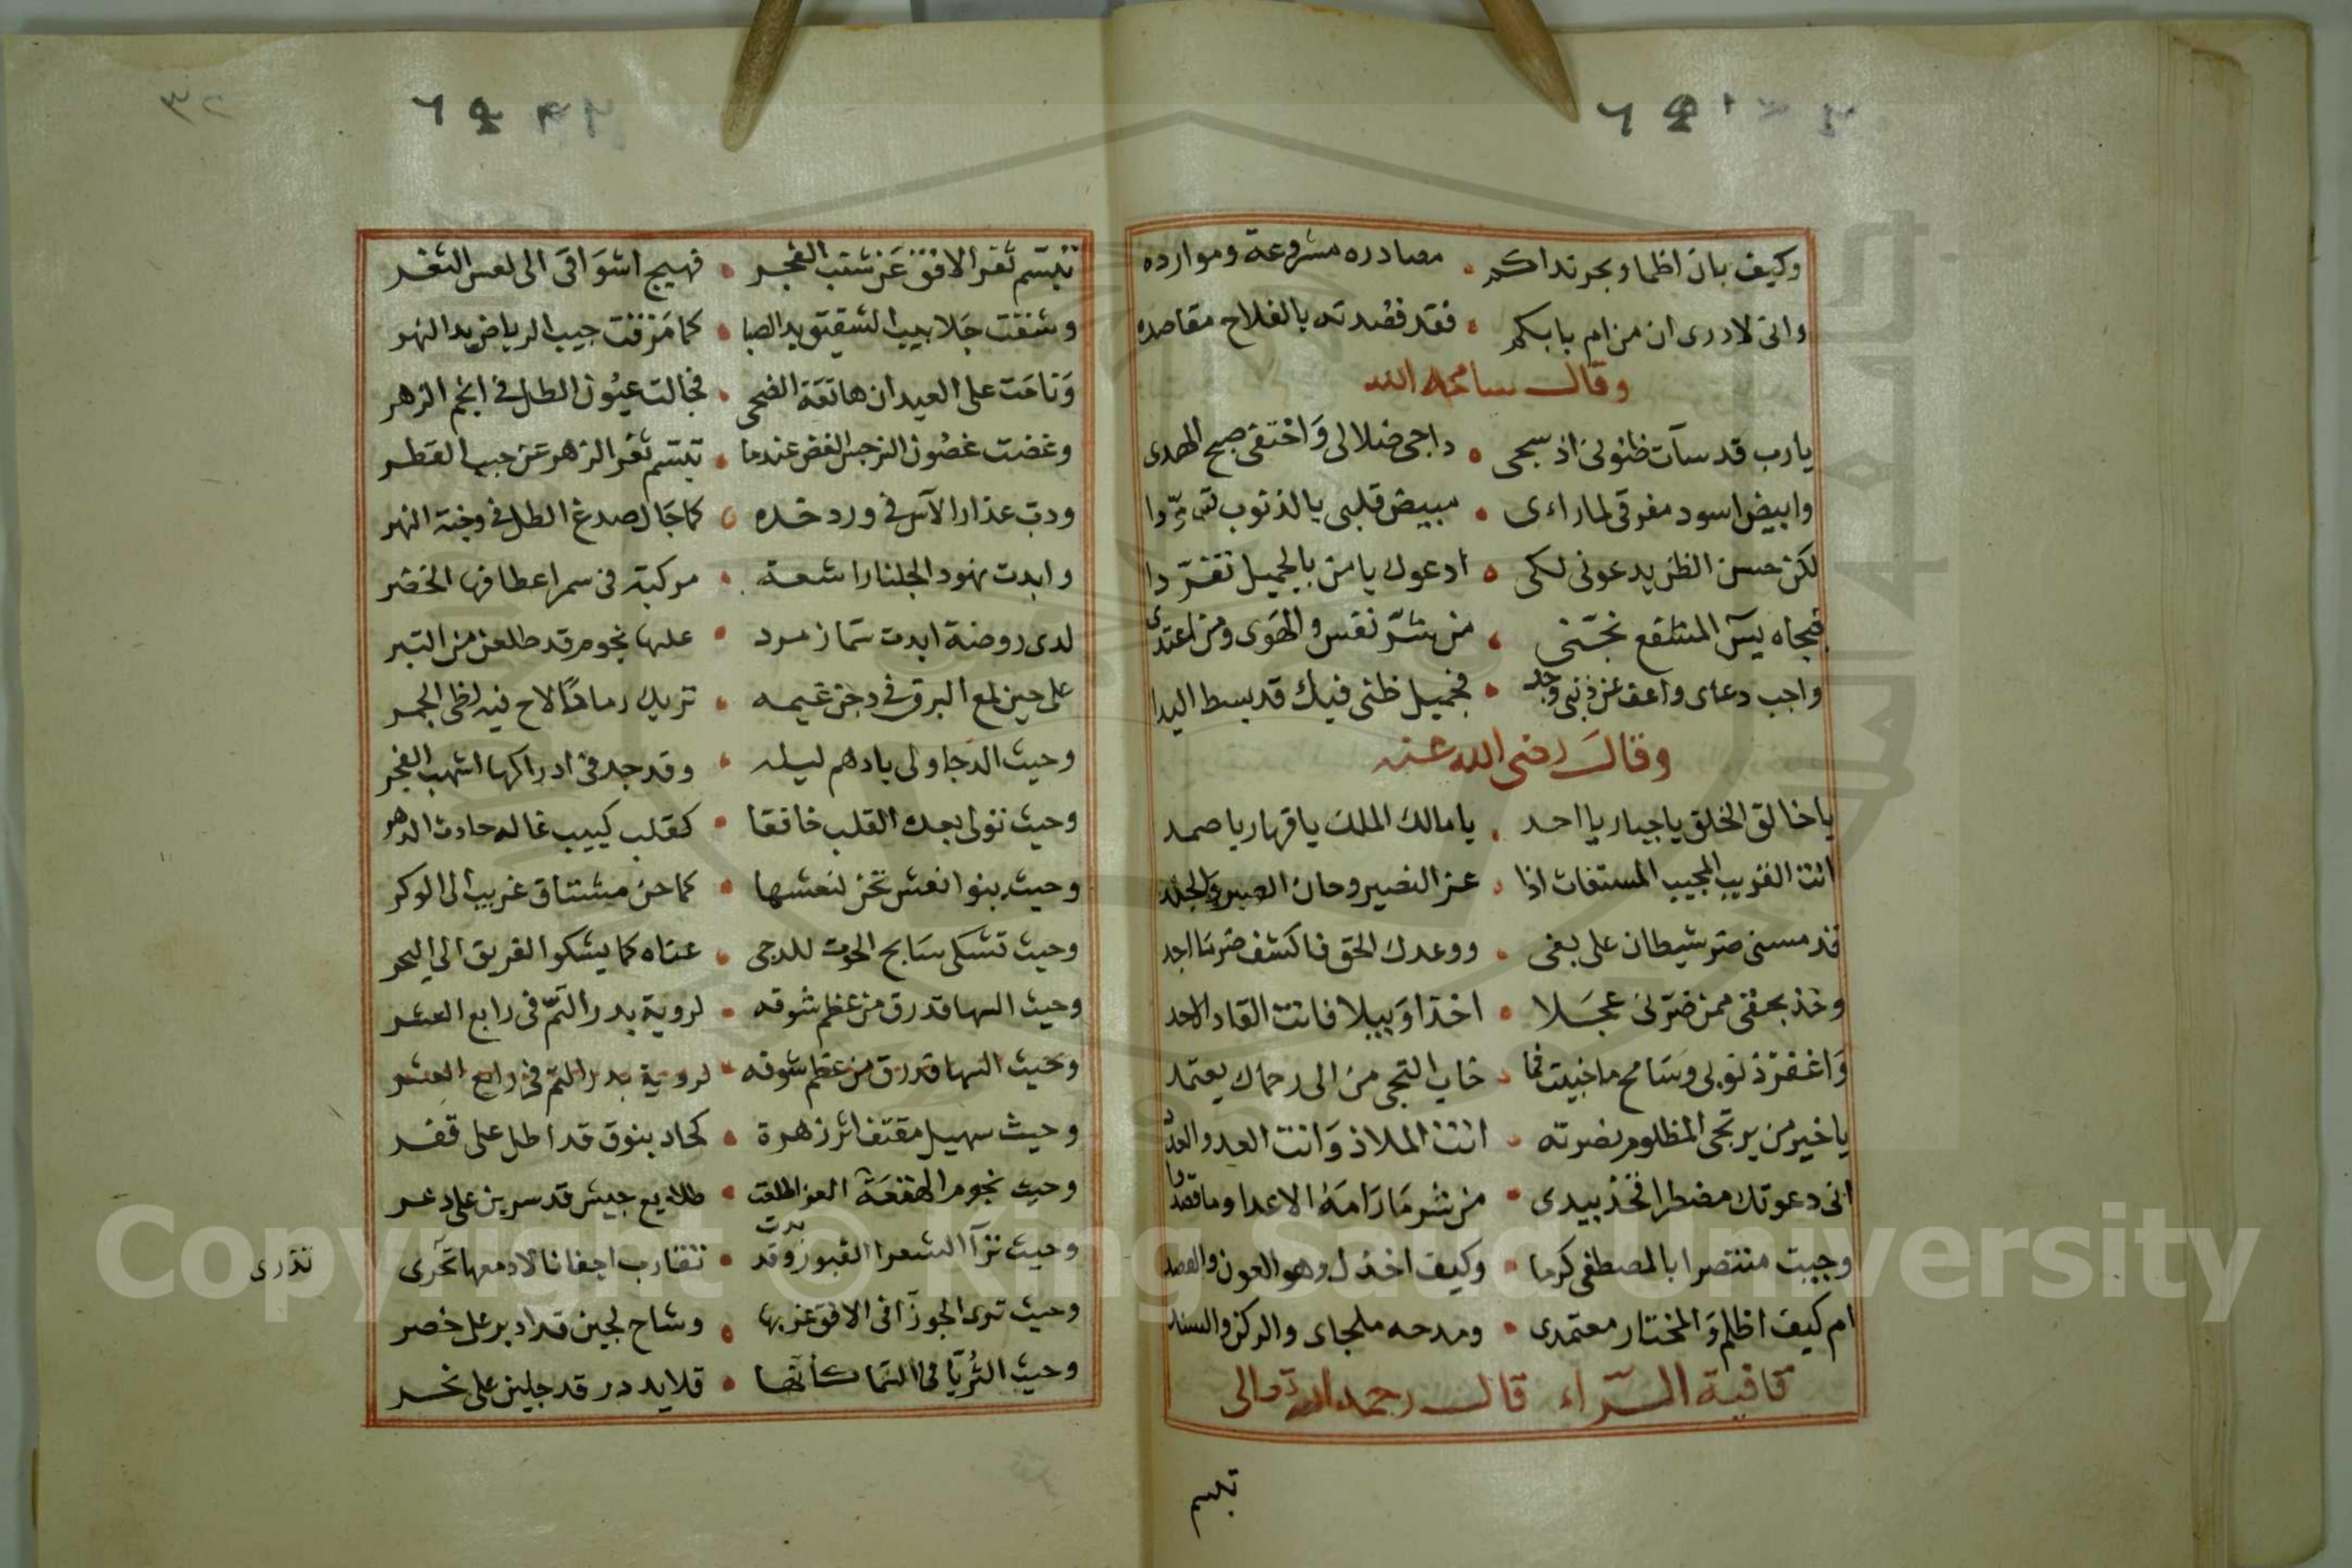 وكيف بان اظما وبحر نداكم • مصادره مشروعة وموارده
وانى لادرى ان من ام بابكم • فقد قصدته بالفلاح مقاصده
وقال سامحه الله
يارب قد سآت ظنونى اذ سجى • داجى ضلالى وَاختفى صبح الهدى
وابيض اسود مفرقى لما راءى • مبيض قلبى بالذنوب تسوّدا
لكن حسن الظن يدعونى لكى • ادعوك يا من بالجميل تفرّدا
فبجاه يسٓ المشفع نجّنى • من شرّ نفس والهَوى ومن اعتدى
واجب دعاى واعف عن ذنبى وجد • فجميل ظنى فيك قد بسط اليدا
وقال رضى الله عنه
يا خالق الخلق يا جبار يا احد • يا مالك الملك يا قهار يا صمد
انت القريب المجيب المستغاث اذا • عز النصير وحان الصبر والجلد
قد مسنى ضر شيطان على بغى • ووعدك الحق فاكشف ضر ما اجد
وخذ بحقى ممن ضرّنى عجَلا • اخذا وَبيلا فانت القادر الاحد
وَاغفر ذنوبى وسَامح ما جنيت فما • خاب التجى من الى رحماك يعتمد
يا خير من يرتجى المظلوم نصرته • انت الملاذ وَانت العد والعدد
انى دعوتك مضطرا فخذ بيدى • من شر مَا رَامَهُ الاعدا وما قصدوا
وجيت منتصرا بالمصطفى كرما • وكيف اخذل وهو العون والعضد
ام كيف اظلم وَالمختار معتمدى • ومدحه ملجاى والركن والسند
قافية الرّاء قال رحمه الله تعالى
تبسم
٣٢
تبسّم ثغر الافق عَن شنب الفجر • فهيج اشوَاقى الى لعس الثغر
وشققت جَلابيب الشقيق يد الصبا • كما مَزقت جيب الرياض يد النهر
وَناحَت على العيدان هاتفة الضحى • فجالت عيُون الطل فى انجم الزهر
وغضت غصُون النرجس الغض عندما • تبسّم ثغر الزهر عَن حبب القطر
ودبّ عذار الآس فى ورد خده • كما جَال صدغ الطل فى وجنة النهر
وابدت نهود الجلنار اشعة • مركبة فى سمر اعطافها الخضر
لدى روضة ابدت سَما زمرد • عليها نجوم قد طلعن من التبر
على حين لمع البرق فى دجن غيمه • تريك رمادًا لاح فيه لظى الجمر
وحيث الدجا ولى بادهم ليله • وقد جد فى ادراكها اشهب الفجر
وحيث تولى بعدك القلب خافقا • كقلب كييب غاله حادث الدهر
وحيث بنوا نعش تحن لنعشها • كما حن مشتاق غريب الى الوكر
وحيث تشكى سَابح الحوت للدجى • عناه كما يشكوا الغريق الى البحر
وحيث السها قد رق من عظم شوقه • لروية بدر التمّ فى رابع العشر
وحيث السها قد رق من عظم شوقه • لروية بدر التمّ فى رابع العشر
وحيث سهيل مقتف اثر زهرة • كحاد بنوق قد اطل على قفر
وحيث نجوم الهقعَة الغر اطلعت • طلايع جيش قد سرين على ذعر
وحيث ترآ الشعرا الغبور وقد بدت • تقارب اجفانا لادمعها تحرى
تذرى
وحيث ترى الجوزآ فى الافق غربها • وشاح لجين قد ادير على خصر
وحيث الثُريّا فى السّما كأنّها • قلايد در قد جلين على نحر
Copyright © King Saud University